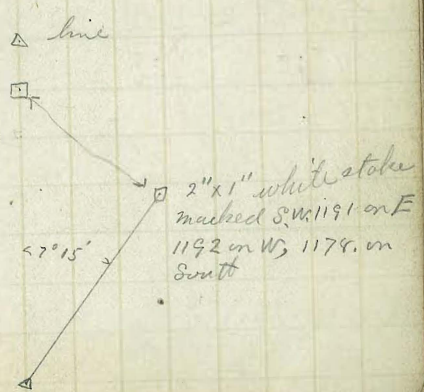 line
2"x1" white stake
marked S.W. 1191 on E
1192 on W, 1178. on
South
<7°15'